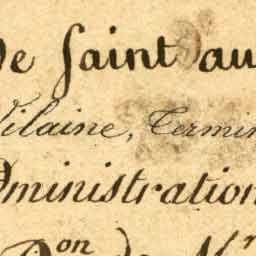 de Saint au
Vilaine, Termin
dministration
Don de Mr